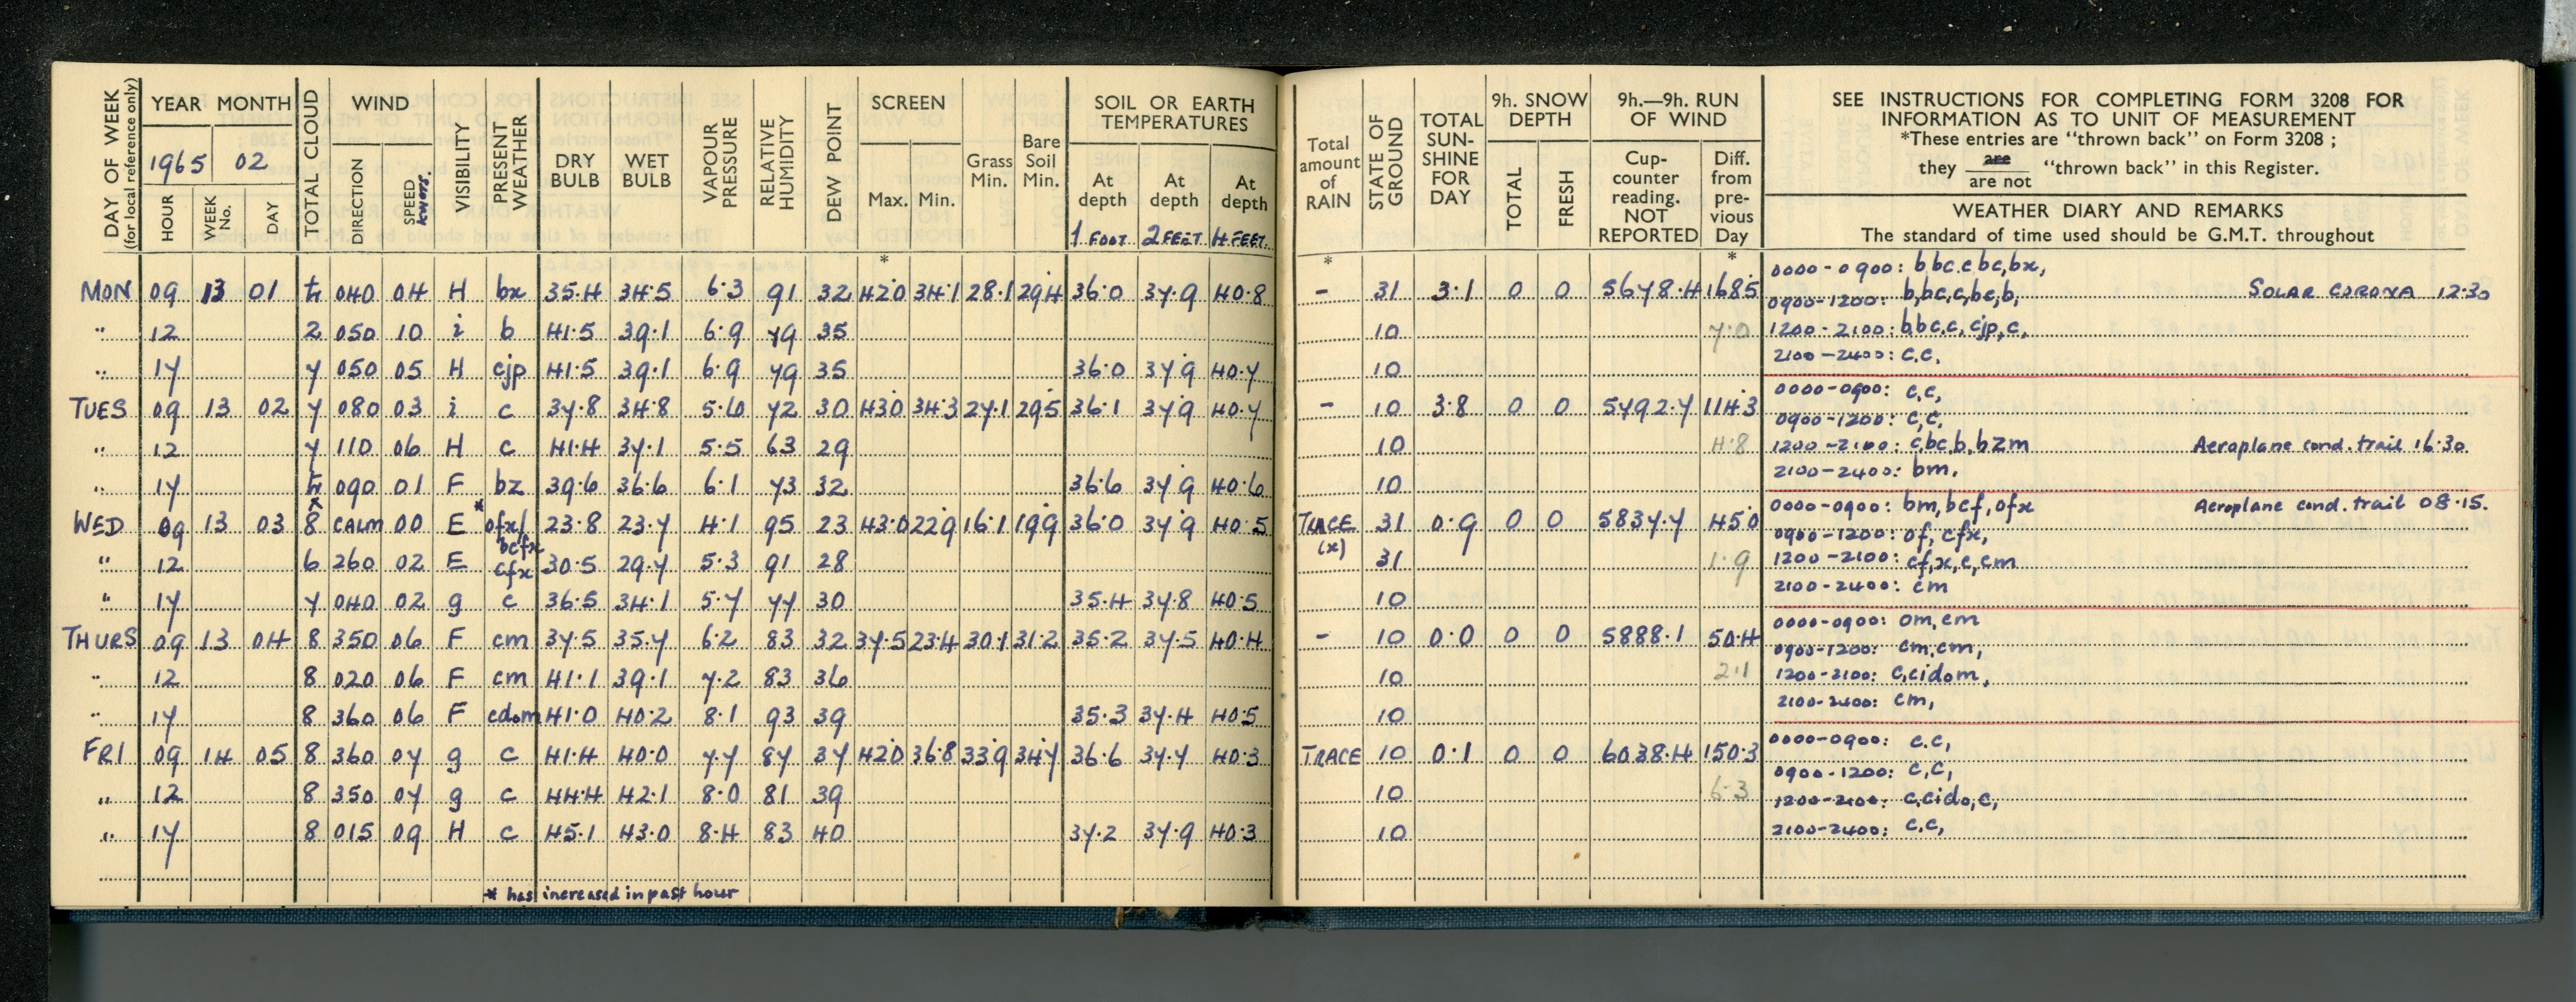 DAY OF WEEK (for local reference only) YEAR MONTH TOTAL CLOUD WIND VISIBILITY PRESENT WEATHER DRY BULB WET BULB VAPOUR PRESSURE RELATIVE HUMIDITY DEW POINT SCREEN SOIL OR EARTH TEMPERATURES
1965 02
HOUR WEEK No. DAY DIRECTION SPEED KNOTS. Max. Min. Grass Min. Bare Soil Min. At depth At depth At depth
1 FOOT 2 FEET 4 FEET.
*
MON 09 13 01 040 04 H bx 35.4 34.5 6.3 91 32 42.0 34.1 28.1 29.4 36.0 37.9 40.8
" 12 2 050 10 i b 41.5 39.1 6.9 79 35
" 17 7 050 05 H cjp 41.5 39.1 6.9 79 35 36.0 37.9 40.7
TUES 09 13 02 7 080 03 i c 37.8 34.8 5.6 72 30 43.0 34.3 27.1 29.5 36.1 37.9 40.7
" 12 7 110 06 H c 41.4 37.1 5.5 63 29
" 17 090 01 F bz 39.6 36.6 6.1 73 32 36.6 37.9 40.6
WED 09 13 03 8 CALM 00 E * ofx/ bcfx 23.8 23.7 4.1 95 23 43.0 22.9 16.1 19.9 36.0 37.9 40.5
" 12 6 260 02 E cfx 30.5 29.7 5.3 91 28
" 17 7 040 02 g c 36.5 34.1 5.7 77 30 35.4 37.8 40.5
THURS 09 13 04 8 350 06 F cm 37.5 35.7 6.2 83 32 37.5 23.4 30.1 31.2 35.2 37.5 40.4
" 12 8 020 06 F cm 41.1 39.1 7.2 83 36
" 17 8 360 06 F cdom 41.0 40.2 8.1 93 39 35.3 37.4 40.5
FRI 09 14 05 8 360 07 g c 41.4 40.0 7.7 87 37 42.0 36.8 33.9 34.7 36.6 37.7 40.3
" 12 8 350 07 g c 44.4 42.1 8.0 81 39
" 17 8 015 09 H c 45.1 43.0 8.4 83 40 37.2 37.9 40.3
* has increased in past hour
Total amount of RAIN STATE OF GROUND TOTAL SUN-SHINE FOR DAY 9h. SNOW DEPTH 9h.—9h. RUN OF WIND
TOTAL FRESH Cup-counter reading. NOT REPORTED Diff. from pre-vious Day
* *
SEE INSTRUCTIONS FOR COMPLETING FORM 3208 FOR
INFORMATION AS TO UNIT OF MEASUREMENT
*These entries are "thrown back" on Form 3208 ;
they are / are not "thrown back" in this Register.
WEATHER DIARY AND REMARKS
The standard of time used should be G.M.T. throughout
- 31 3.1 0 0 5678.4 168.5
0000-0900: b bc.c bc,bx,
0900-1200: b,bc,c,bc,b, SOLAR CORONA 12.30
10 7.0 1200-2100: b,bc,c, cjp,c,
2100-2400: c.c,
10
- 10 3.8 0 0 5792.7 114.3
0000-0900: c,c,
0900-1200: c,c,
10 4.8 1200-2100: c,bc,b,bzm Aeroplane cond. trail 16.30.
2100-2400: bm,
10
TRACE (x) 31 0.9 0 0 5837.7 45.0
0000-0900: bm,bcf,ofx Aeroplane cond. trail 08.15.
0900-1200: of, cfx,
31 1.9 1200-2100: cf,x,c,cm
2100-2400: cm
10
- 10 0.0 0 0 5888.1 50.4
0000-0900: om,cm
0900-1200: cm,cm,
10 2.1 1200-2100: c,cidom,
2100-2400: cm,
10
TRACE 10 0.1 0 0 6038.4 150.3
0000-0900: c.c,
0900-1200: c,c,
10 6.3 1200-2100: c,cido,c,
2100-2400: c.c,
10